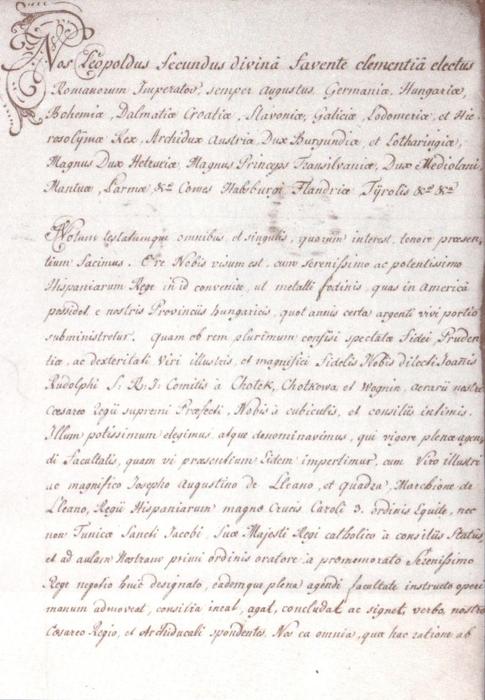 Nos Leopoldus Secundus divinâ favente clementiâ electus
Romanorum Imperator, semper Augustus Germaniæ, Hungariæ,
Bohemiæ, Dalmatiæ Croatiæ, Slavoniæ, Galiciæ, Lodomeriæ, et Hie-
rosolymæ Rex, Archidux Austriæ, Dux Burgundiæ, et Lotharingiæ,
Magnus Dux Hetruriæ, Magnus Princeps Transilvaniæ, Dux Mediolani,
Mantuæ, Parmæ &ca Comes Habsburgi, Flandriæ, Tÿrolis &ca &ca
Notum testatumque omnibus, et singulis, quorum interest, tenore præsen-
tium facimus. E're Nobis visum est, cum Serenissimo ac potentissimo
Hispaniarum Rege in id convenire, ut metalli fodinis, quas in America
possidet e nostris Provinciis hungaricis, quot annis certa argenti vivi portio
subministretur. Quam ob rem plurimum confisi spectatæ Fidei, Pruden-
tiæ, ac dexteritati Viri illustris, et magnifici Fidelis Nobis dilecti Joañis
Rudolphi S: R: I: Comitis à Chotek, Chotkowa, et Wognin, Aerarii nostri
Cæsareo Regii supremi Præfecti, Nobis à cubiculis, et consiliis intimis.
Illum potissimum elegimus, atque denominavimus, qui vigore plenæ agen-
di Facultatis, quam vi præsentium Eidem impertimur, cum Viro illustri
ac magnifico Josepho Augustino de Lleano, et Quadra, Marchione de
Lleano, Regii Hispaniarum magnæ Crucis Caroli 3. ordinis Equite, nec
non Tunicæ Sancti Jacobi, Suæ Majesti Regi catholicæ à consiliis Status,
et ad aulam Nostram primi ordinis oratore, a promemorato Serenissimo
Rege negotio huic designato, eademque plena agendi facultate instructo operi
manum admoveat, consilia ineat, agat, concludat ac signet; verbo nostro
Cæsareo Regio, et Archiducali spondentes, Nos ea omnia, quæ hac ratione ab